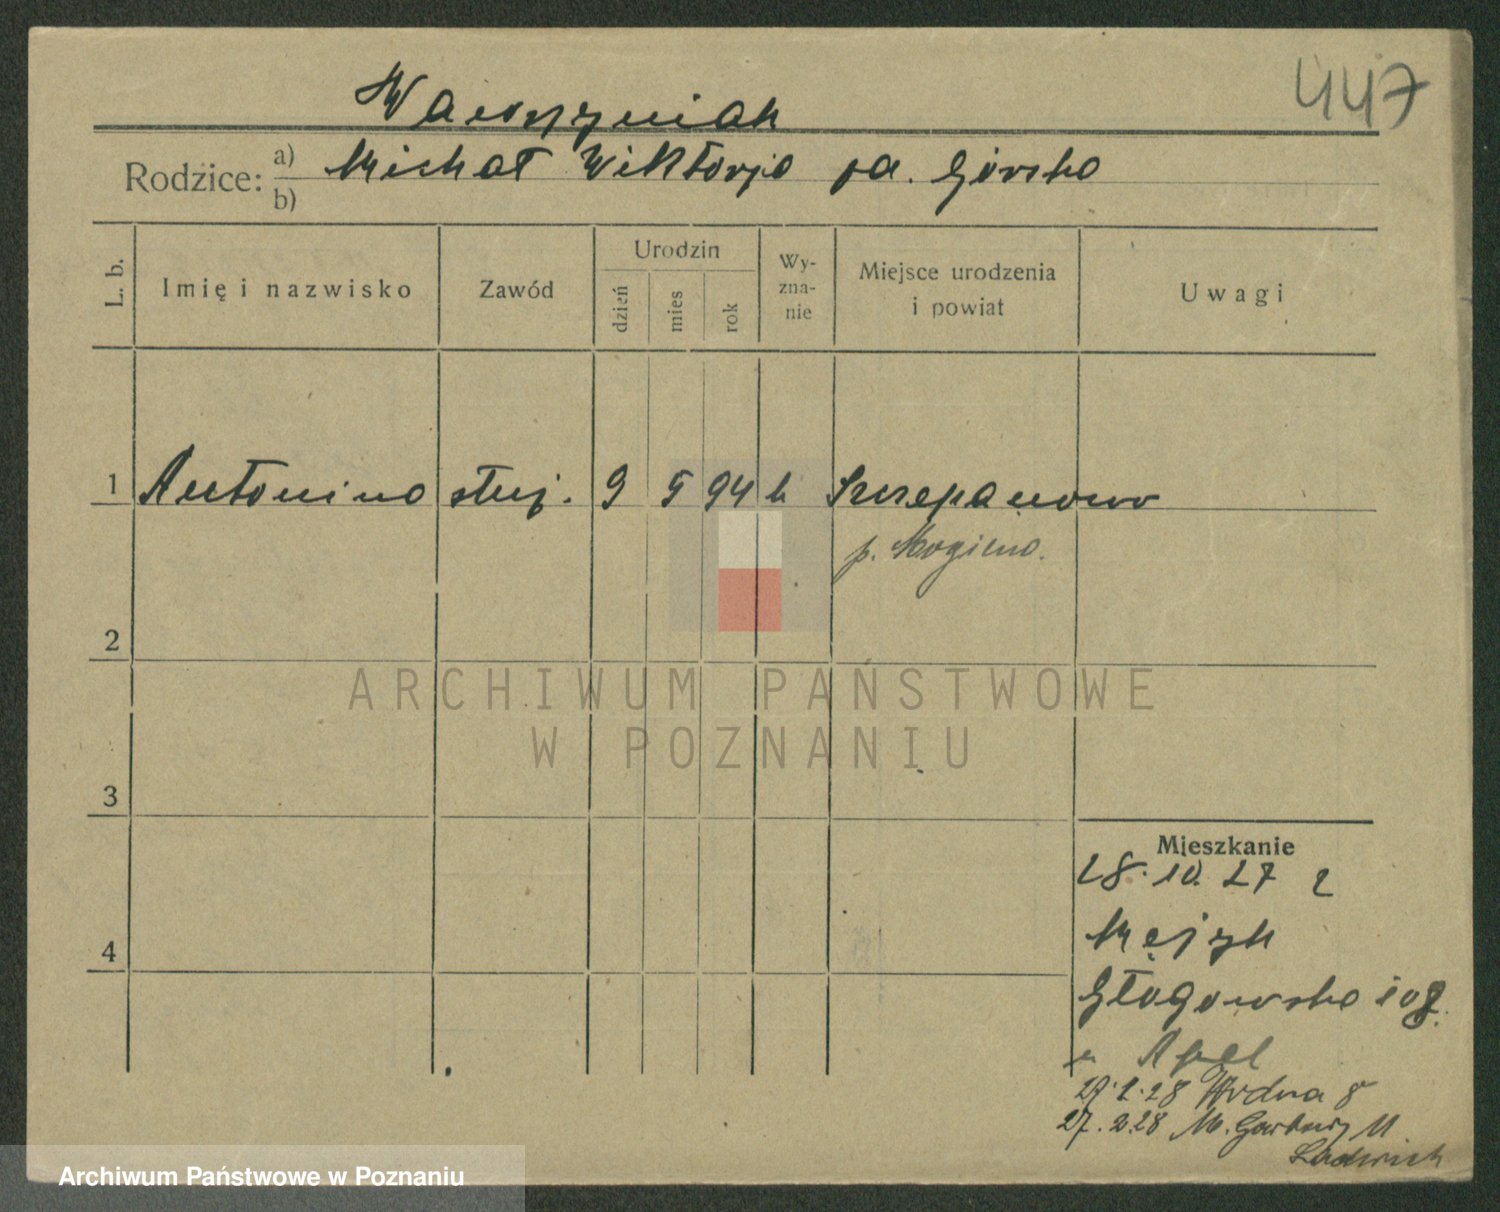 447
Wawrzyniak
Rodzice: a) Michał Wiktorja pa. Górska
b)
L. b. Imię i nazwisko Zawód Urodzin dzień mies rok Wy-zna-nie Miejsce urodzenia i powiat Uwagi
1 Antonina służ. 9 5 94 k Szczepanowo
p. Mogilno.
2
3
4
Mieszkanie
28. 10. 27 z
Głogowska 108.
u Apel
27. 1. 28 Wodna 8
27. 2. 28 M. Garbary 11
ARCHIWUM PAŃSTWOWE
W POZNANIU
Archiwum Państwowe w Poznaniu